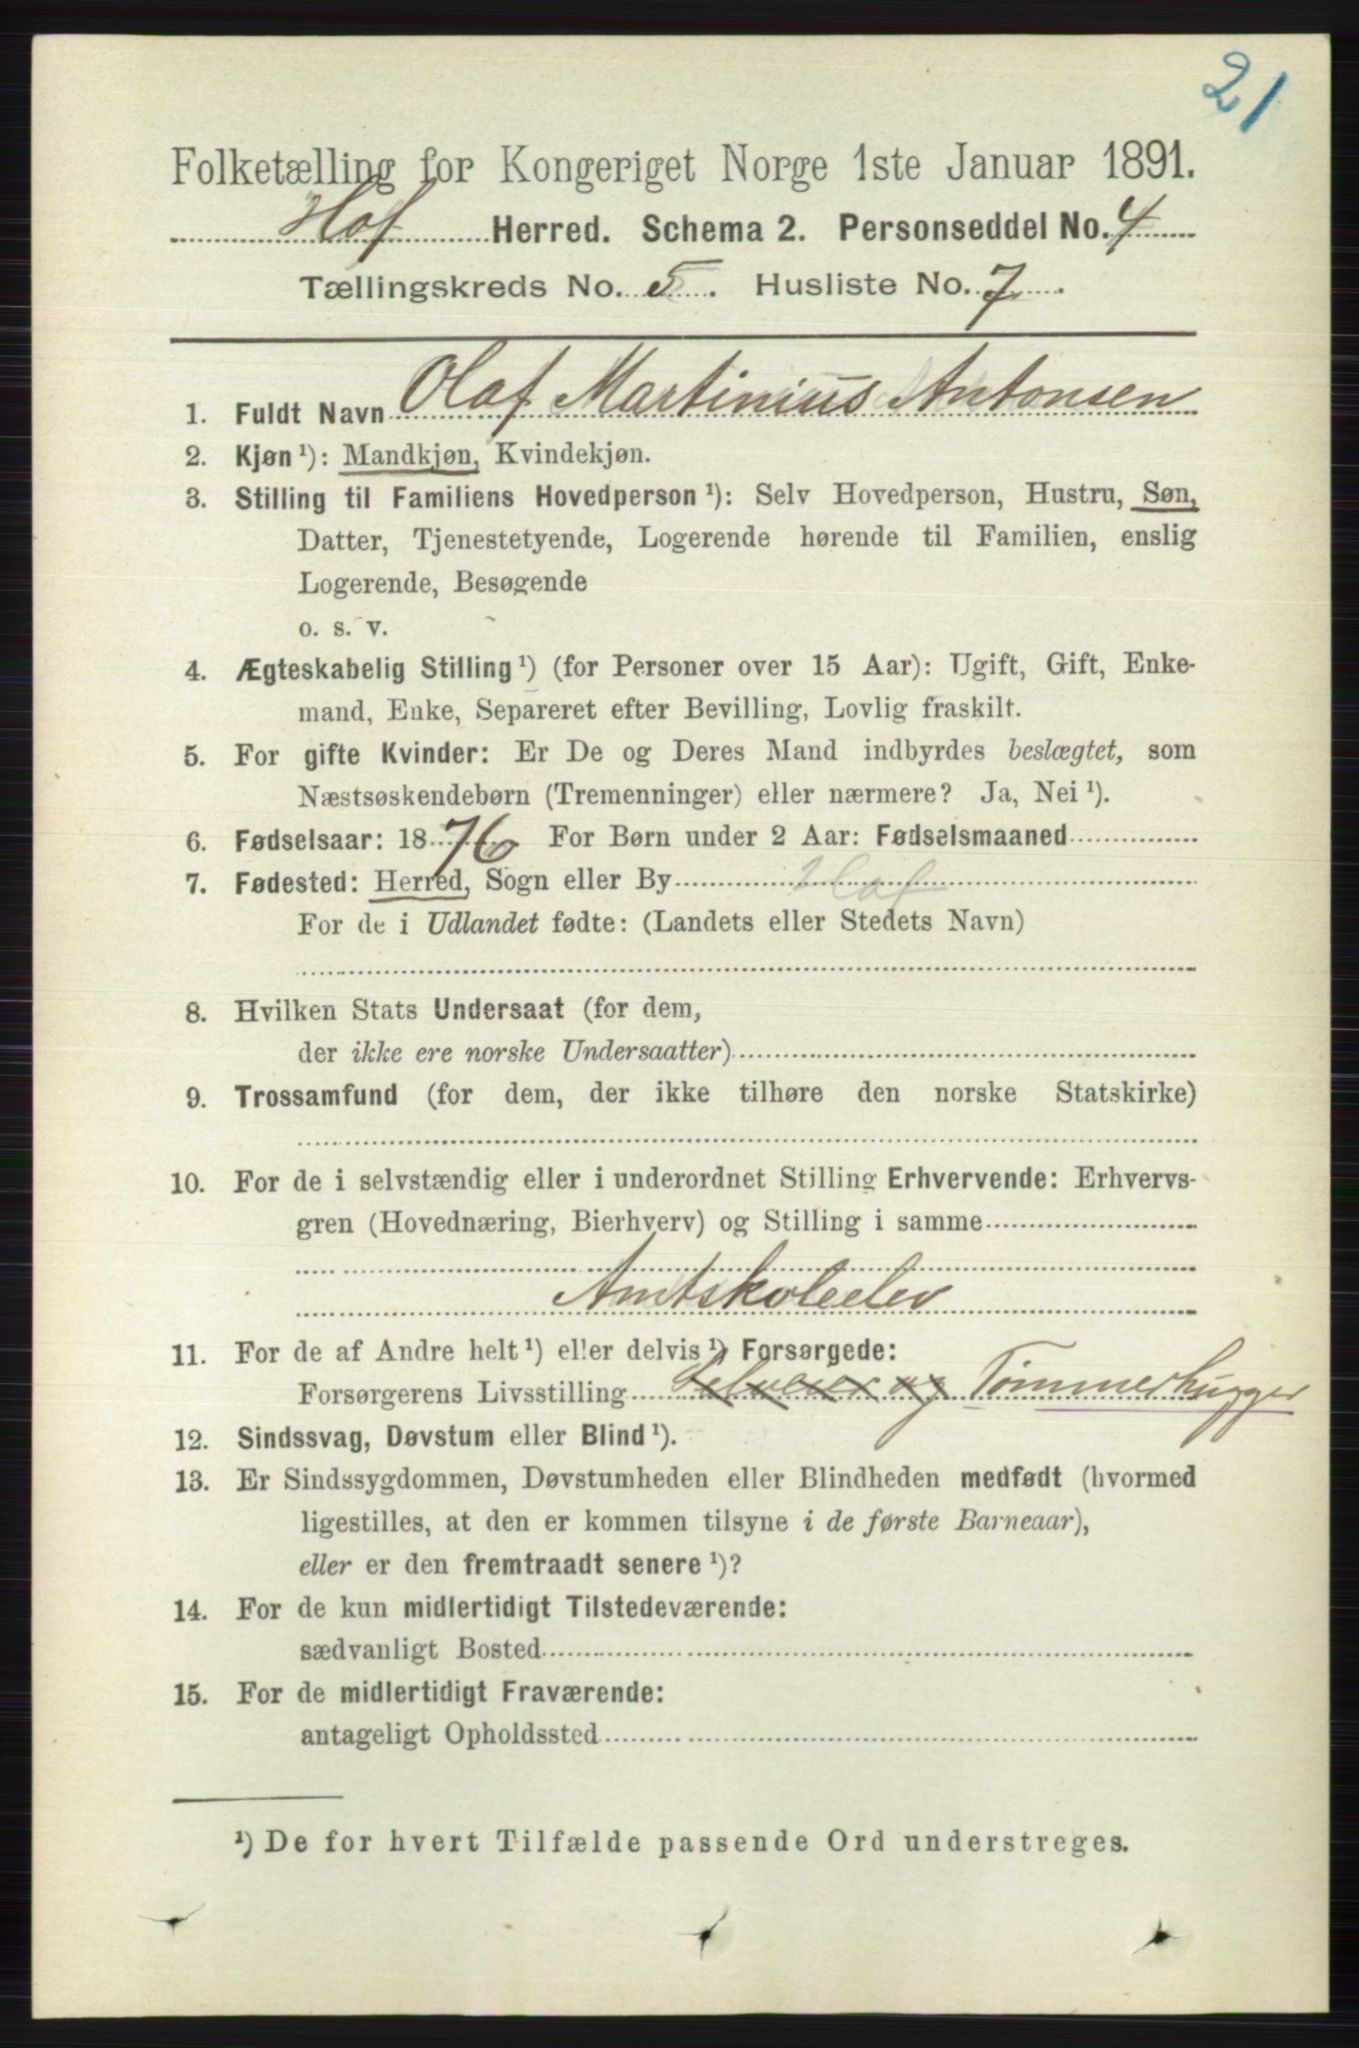 21
Folketælling for Kongeriget Norge 1ste Januar 1891.
Hof Herred. Schema 2. Personseddel No. 4
Tællingskreds No. 5. Husliste No. 7.
1. Fuldt Navn Olaf Martinius Antonsen
2. Kjøn ¹): Mandkjøn, Kvindekjøn.
3. Stilling til Familiens Hovedperson ¹): Selv Hovedperson, Hustru, Søn,
Datter, Tjenestetyende, Logerende hørende til Familien, enslig
Logerende, Besøgende
o. s. v.
4. Ægteskabelig Stilling ¹) (for Personer over 15 Aar): Ugift, Gift, Enke-
mand, Enke, Separeret efter Bevilling, Lovlig fraskilt.
5. For gifte Kvinder: Er De og Deres Mand indbyrdes beslægtet, som
Næstsøskendebørn (Tremenninger) eller nærmere? Ja, Nei ¹).
6. Fødselsaar: 1876 For Børn under 2 Aar: Fødselsmaaned
7. Fødested: Herred, Sogn eller By Hof
For de i Udlandet fødte: (Landets eller Stedets Navn)
8. Hvilken Stats Undersaat (for dem,
der ikke ere norske Undersaatter)
9. Trossamfund (for dem, der ikke tilhøre den norske Statskirke)
10. For de i selvstændig eller i underordnet Stilling Erhvervende: Erhvervs-
gren (Hovednæring, Bierhverv) og Stilling i samme
Amtskoleelev
11. For de af Andre helt ¹) eller delvis ¹) Forsørgede:
Forsørgerens Livsstilling Selveier og Tømmerhugger
12. Sindssvag, Døvstum eller Blind ¹).
13. Er Sindssygdommen, Døvstumheden eller Blindheden medfødt (hvormed
ligestilles, at den er kommen tilsyne i de første Barneaar),
eller er den fremtraadt senere ¹)?
14. For de kun midlertidigt Tilstedeværende:
sædvanligt Bosted
15. For de midlertidigt Fraværende:
antageligt Opholdssted
¹) De for hvert Tilfælde passende Ord understreges.